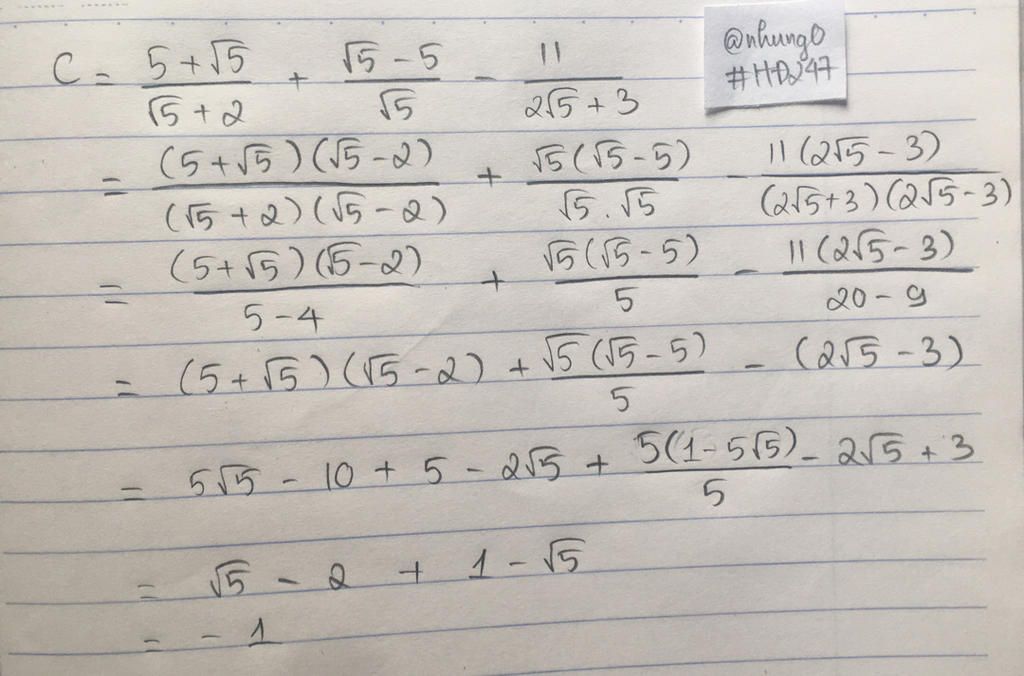 @nhung0
#HĐ247
C = (5 + √5)/(√5 + 2) + (√5 - 5)/√5 - 11/(2√5 + 3)
= (5 + √5)(√5 - 2)/((√5 + 2)(√5 - 2)) + √5(√5 - 5)/(√5 . √5) - 11(2√5 - 3)/((2√5 + 3)(2√5 - 3))
= (5 + √5)(√5 - 2)/(5 - 4) + √5(√5 - 5)/5 - 11(2√5 - 3)/(20 - 9)
= (5 + √5)(√5 - 2) + √5(√5 - 5)/5 - (2√5 - 3)
= 5√5 - 10 + 5 - 2√5 + 5(1 - 5√5)/5 - 2√5 + 3
= √5 - 2 + 1 - √5
= - 1